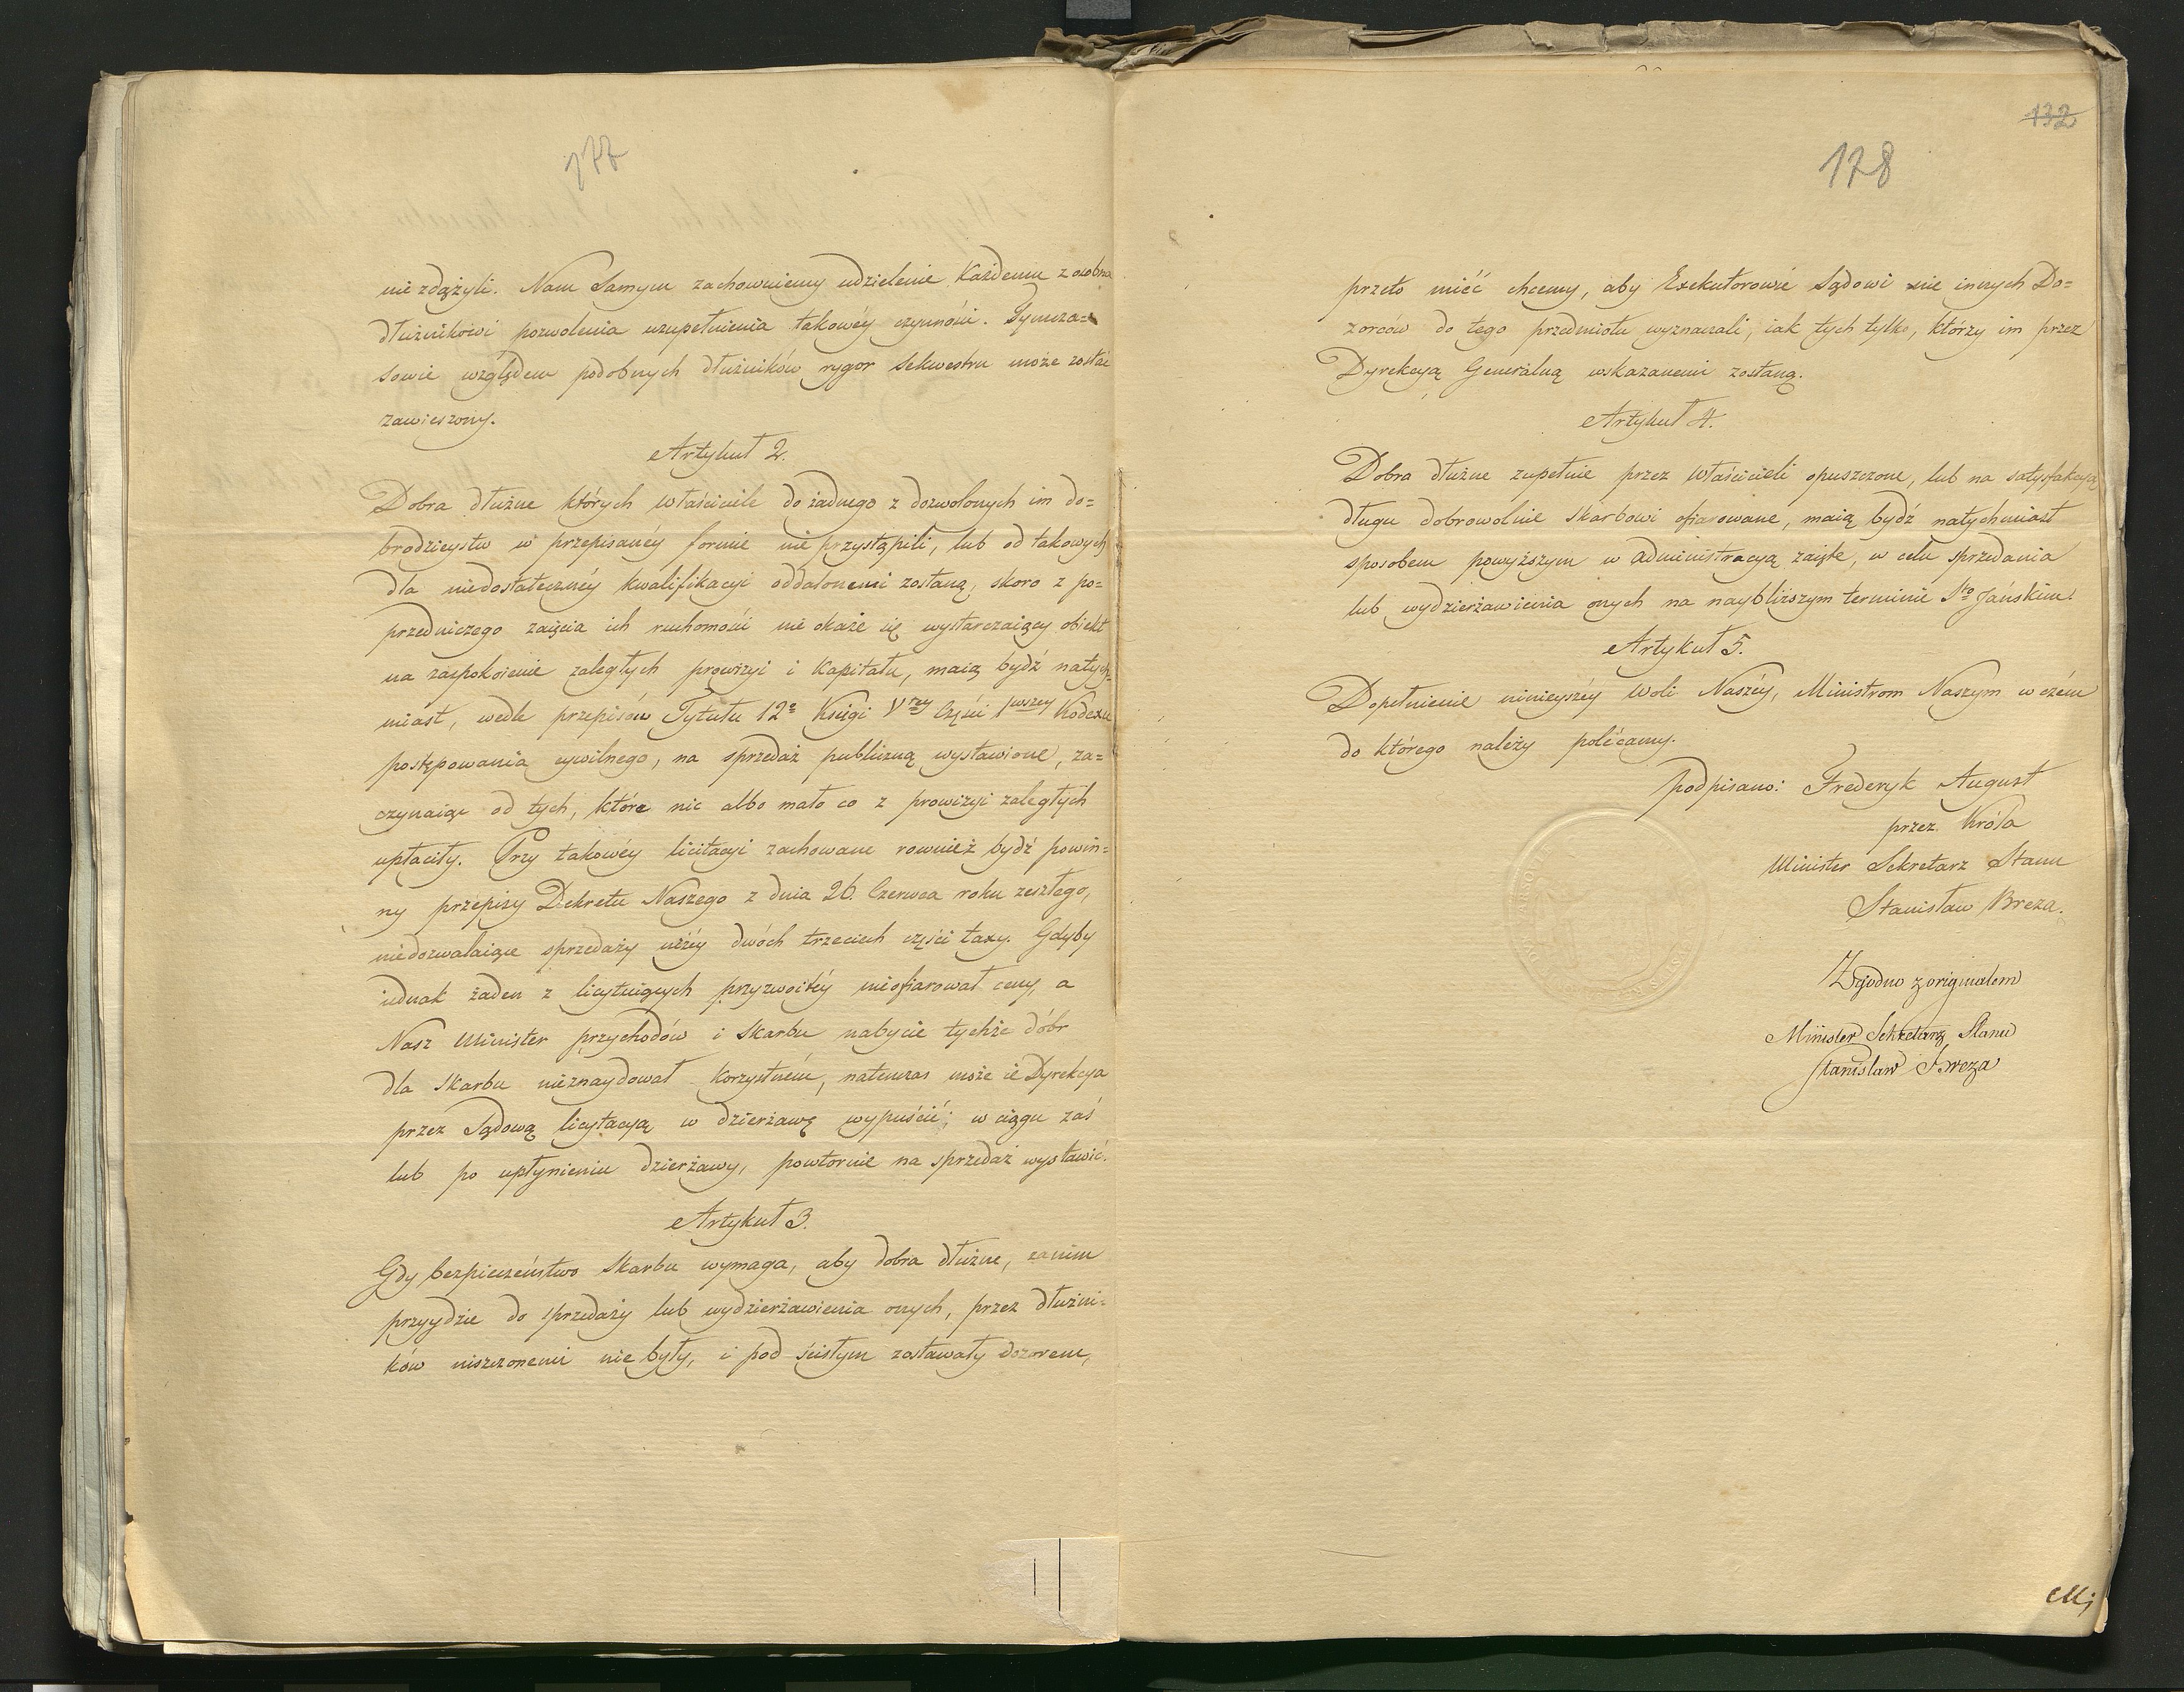 177
nie zdążyli. Nam Samym zachowuiemy udzielenie każdemu z osobna
dłużnikowi pozwolenia uzupełnienia takowéy czynności. Tymcza=
sowie względem podobnych dłużników rygor sekwestru może zostać
zawieszony.
Artykuł 2.
Dobra dłużne których właściciele do żadnego z dozwolonych im do=
brodzieystw w przepisanéy formie nie przystąpili, lub od takowych
dla niedostatecznéy kwalifikacyi oddalonemi zostaną, skoro z po=
przedniczego zaięcia ich ruchomości nie okaże się wystarczaiący obiekt
na zaspokoienie zaległych prowizyi i kapitału, maią bydź natych=
miast, wedle przepisów Tytułu 12º Księgi Vtey Części 1wszey Kodexu
postępowania cywilnego, na sprzedaż publiczną wystawione, za=
czynaiąc od tych, które nic albo mało co z prowizyi zaległych
upłaciły. Przy takowéy licitacyi zachowane również bydź powin=
ny przepisy Dekretu Naszego z dnia 26. Czerwca roku zeszłego,
niedozwalaiące sprzedaży niżéy dwóch trzecich części taxy. Gdyby
iednak żaden z licytuiących przyzwoitéy nieofiarował ceny, a
Nasz Minister przychodów i skarbu nabycie tychże dóbr
dla skarbu nieznaydował korzystném, natenczas może ie Dyrekcya
przez Sądową licytacyą w dzierżawę wypuścić; w ciągu zaś
lub po upłynieniu dzierżawy, powtornie na sprzedaż wystawić.
Artykuł 3.
Gdy bezpieczeństwo Skarbu wymaga, aby dobra dłużne, zanim
przyydzie do sprzedaży lub wydzierżawienia onych, przez dłużni=
ków niszczonemi nie były, i pod ścisłym zostawały dozorem,
132
178
przeto mieć chcemy, aby Exekutorowie Sądowi nie innych Do=
zorców do tego przedmiotu wyznaczali, iak tych tylko, którzy im przez
Dyrekcyą Generalną wskazanemi zostaną.
Artykuł 4.
Dobra dłużne zupełnie przez Właścicieli opuszczone, lub na satysfakcyą
długu dobrowolnie skarbowi ofiarowane, maią bydź natychmiast
sposobem powyższym w administracyą zaięte, w celu sprzedania
lub wydzierżawienia onych na naybliższym terminie Sto Jańskim.
Artykuł 5.
Dopełnienie ninieyszéy Woli Naszéy, Ministrom Naszym w czém
do którego należy polécamy.
podpisano: Frederyk August
przez Króla
Minister Sekretarz Stanu
Stanisław Breza.
Zgodno z originałem
Minister Sekretarz Stanu
Stanisław Breza